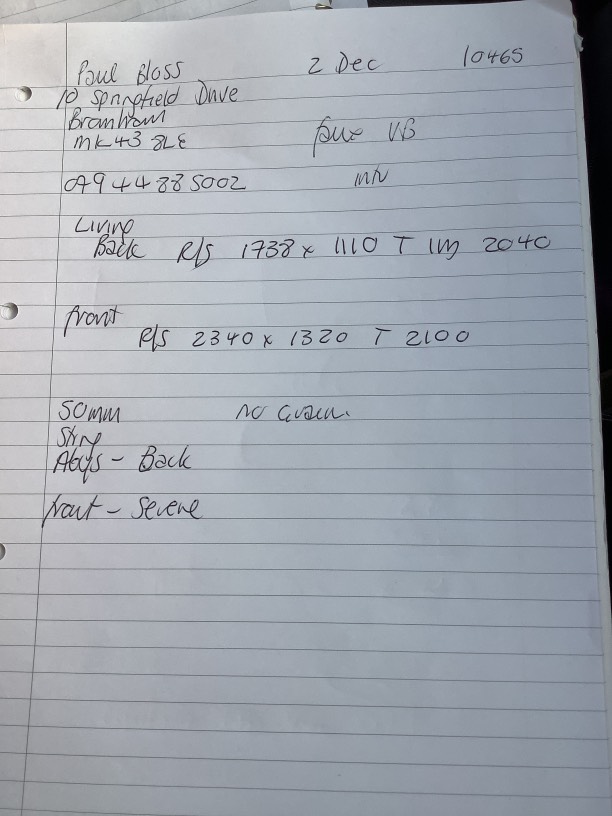 Paul Bloss 2 Dec 10465
10 Springfield Drive
Bromham
MK43 8LE faux VB
07944885002
Living
Back R/S 1738 x 1110 T 2040
front
R/S 2340 x 1320 T 2100
50mm No Grain.
String
Abyss - Back
front - Severe